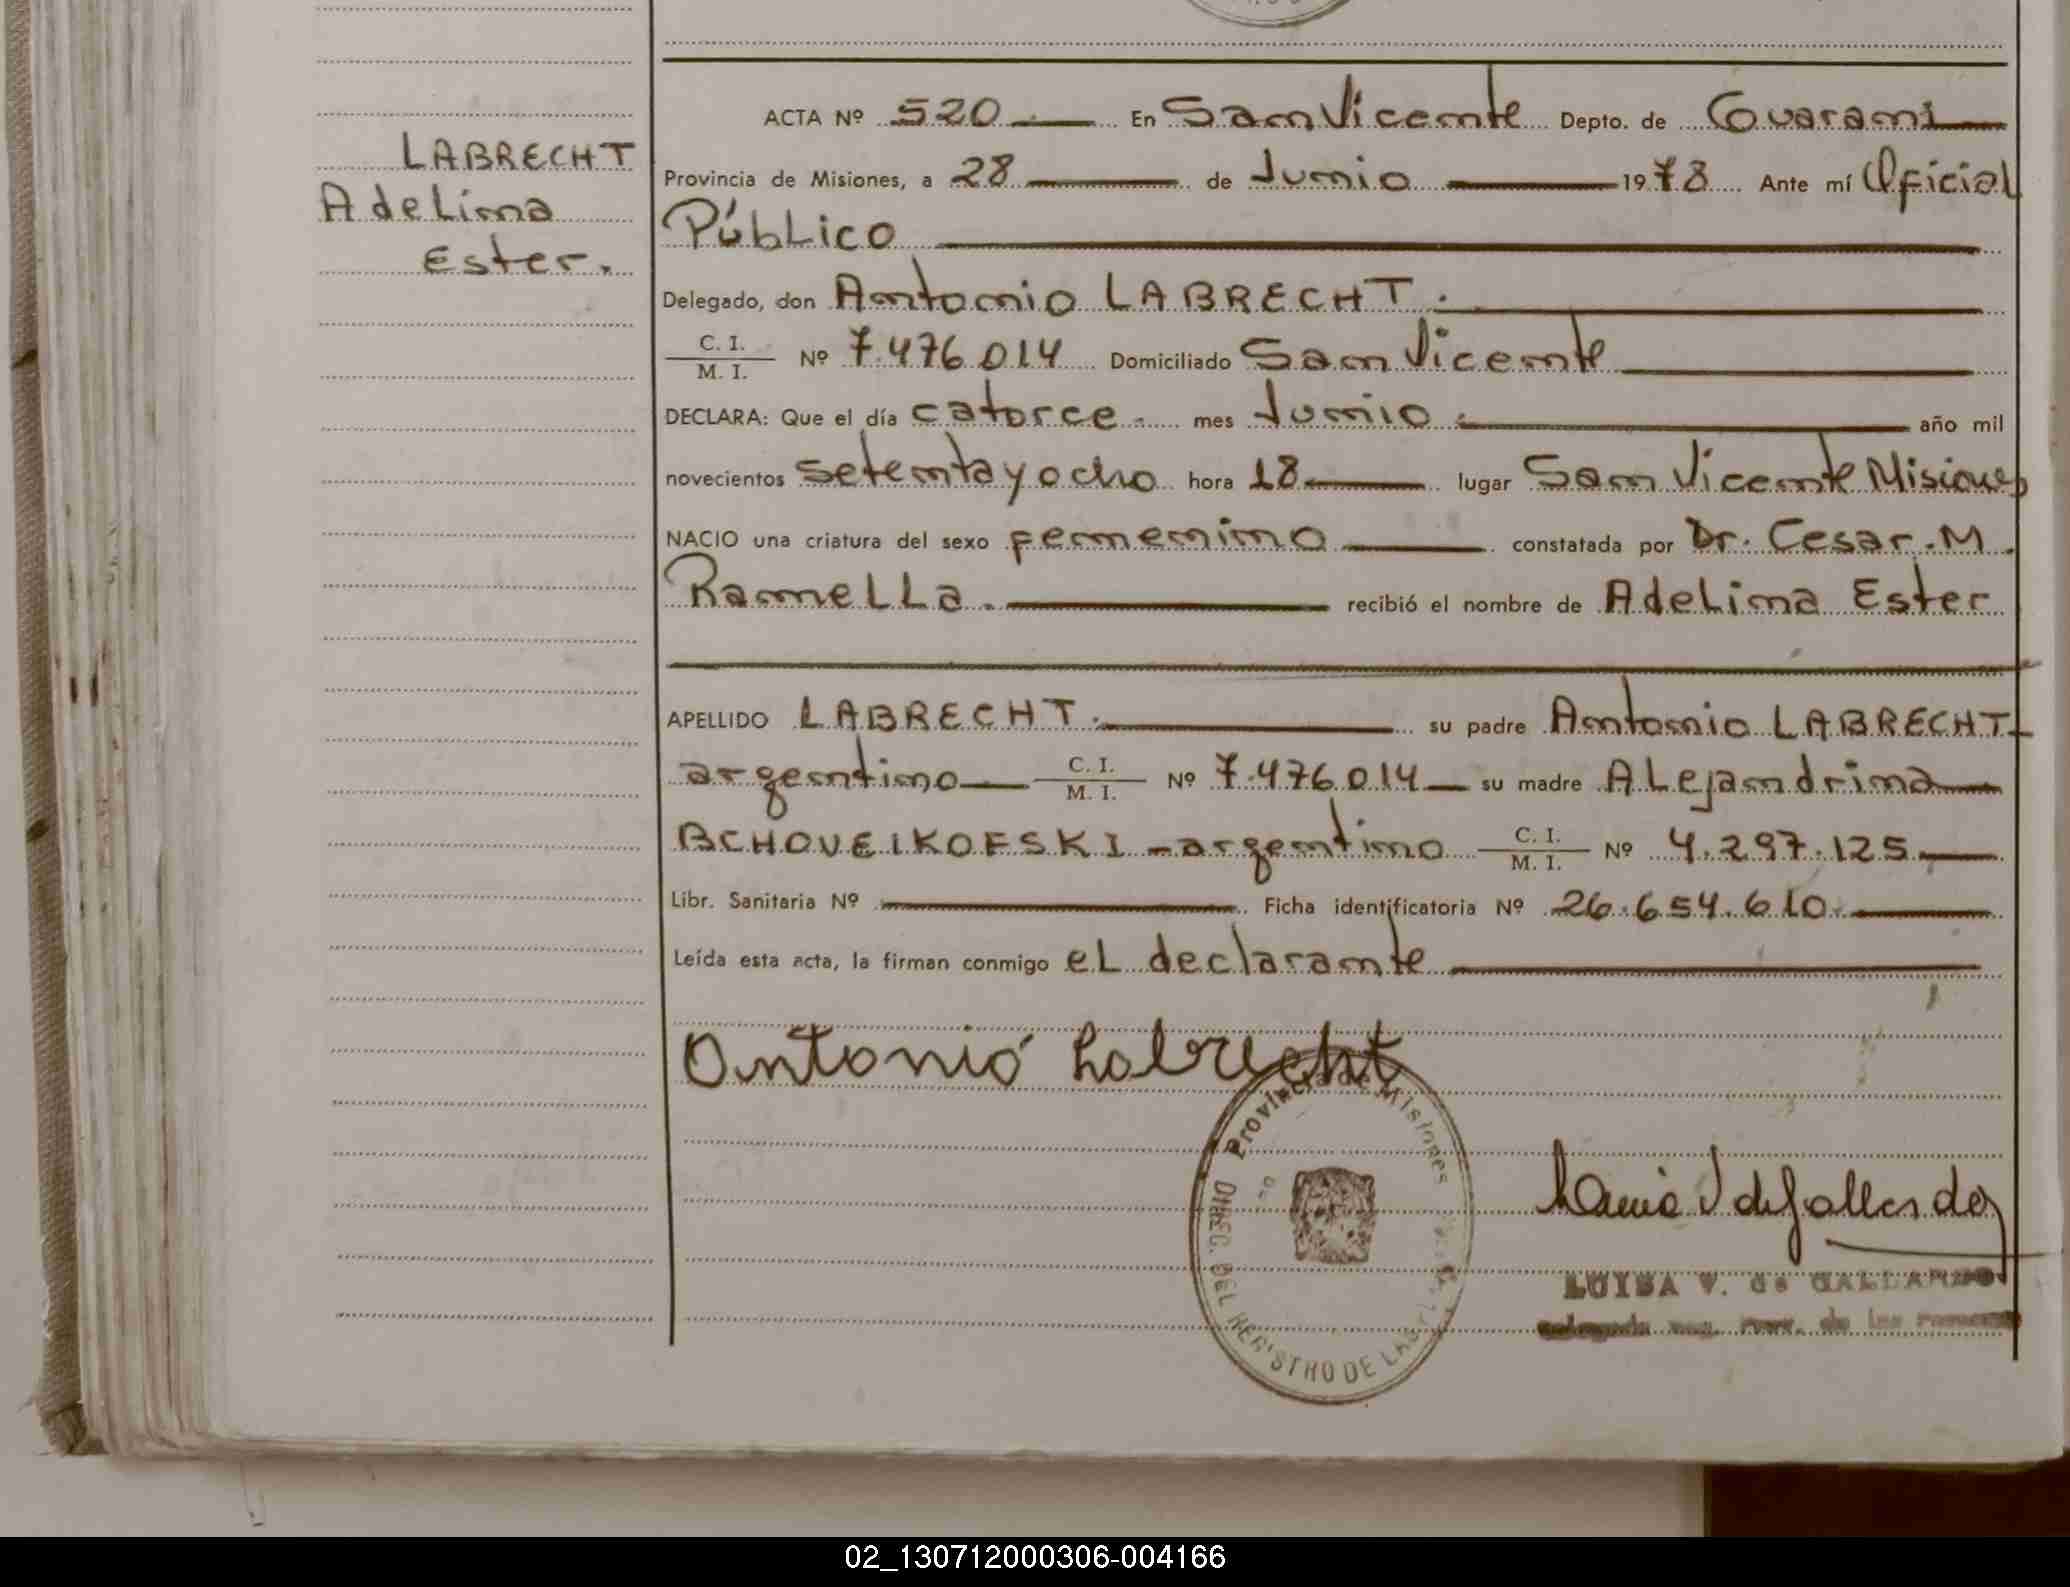 LABRECHT
Adelina
Ester.
ACTA Nº 520 En San Vicente Depto. de Guaraní
Provincia de Misiones, a 28 de Junio 1978 Ante mí Oficial
Público
Delegado, don Antonio LABRECHT.
C. I.
M. I. Nº 7.476.014 Domiciliado San Vicente
DECLARA: Que el día catorce mes Junio año mil
novecientos setenta y ocho hora 18 lugar San Vicente Misiones
NACIO una criatura del sexo femenino constatada por Dr. Cesar. M.
Ramella. recibió el nombre de Adelina Ester
APELLIDO LABRECHT. su padre Antonio LABRECHT
argentino C. I. M. I. Nº 7.476.014 su madre Alejandrina
BCHOVEIKOFSKI - argentino C. I. M. I. Nº 4.297.125
Libr. Sanitaria Nº Ficha identificatoria Nº 26.654.610
Leída esta acta, la firman conmigo el declarante
Antonio Labrecht
Provincia de Misiones
DIREC. DEL REGISTRO DE LAS
LUISA V. de GALLARDO
02_130712000306-004166